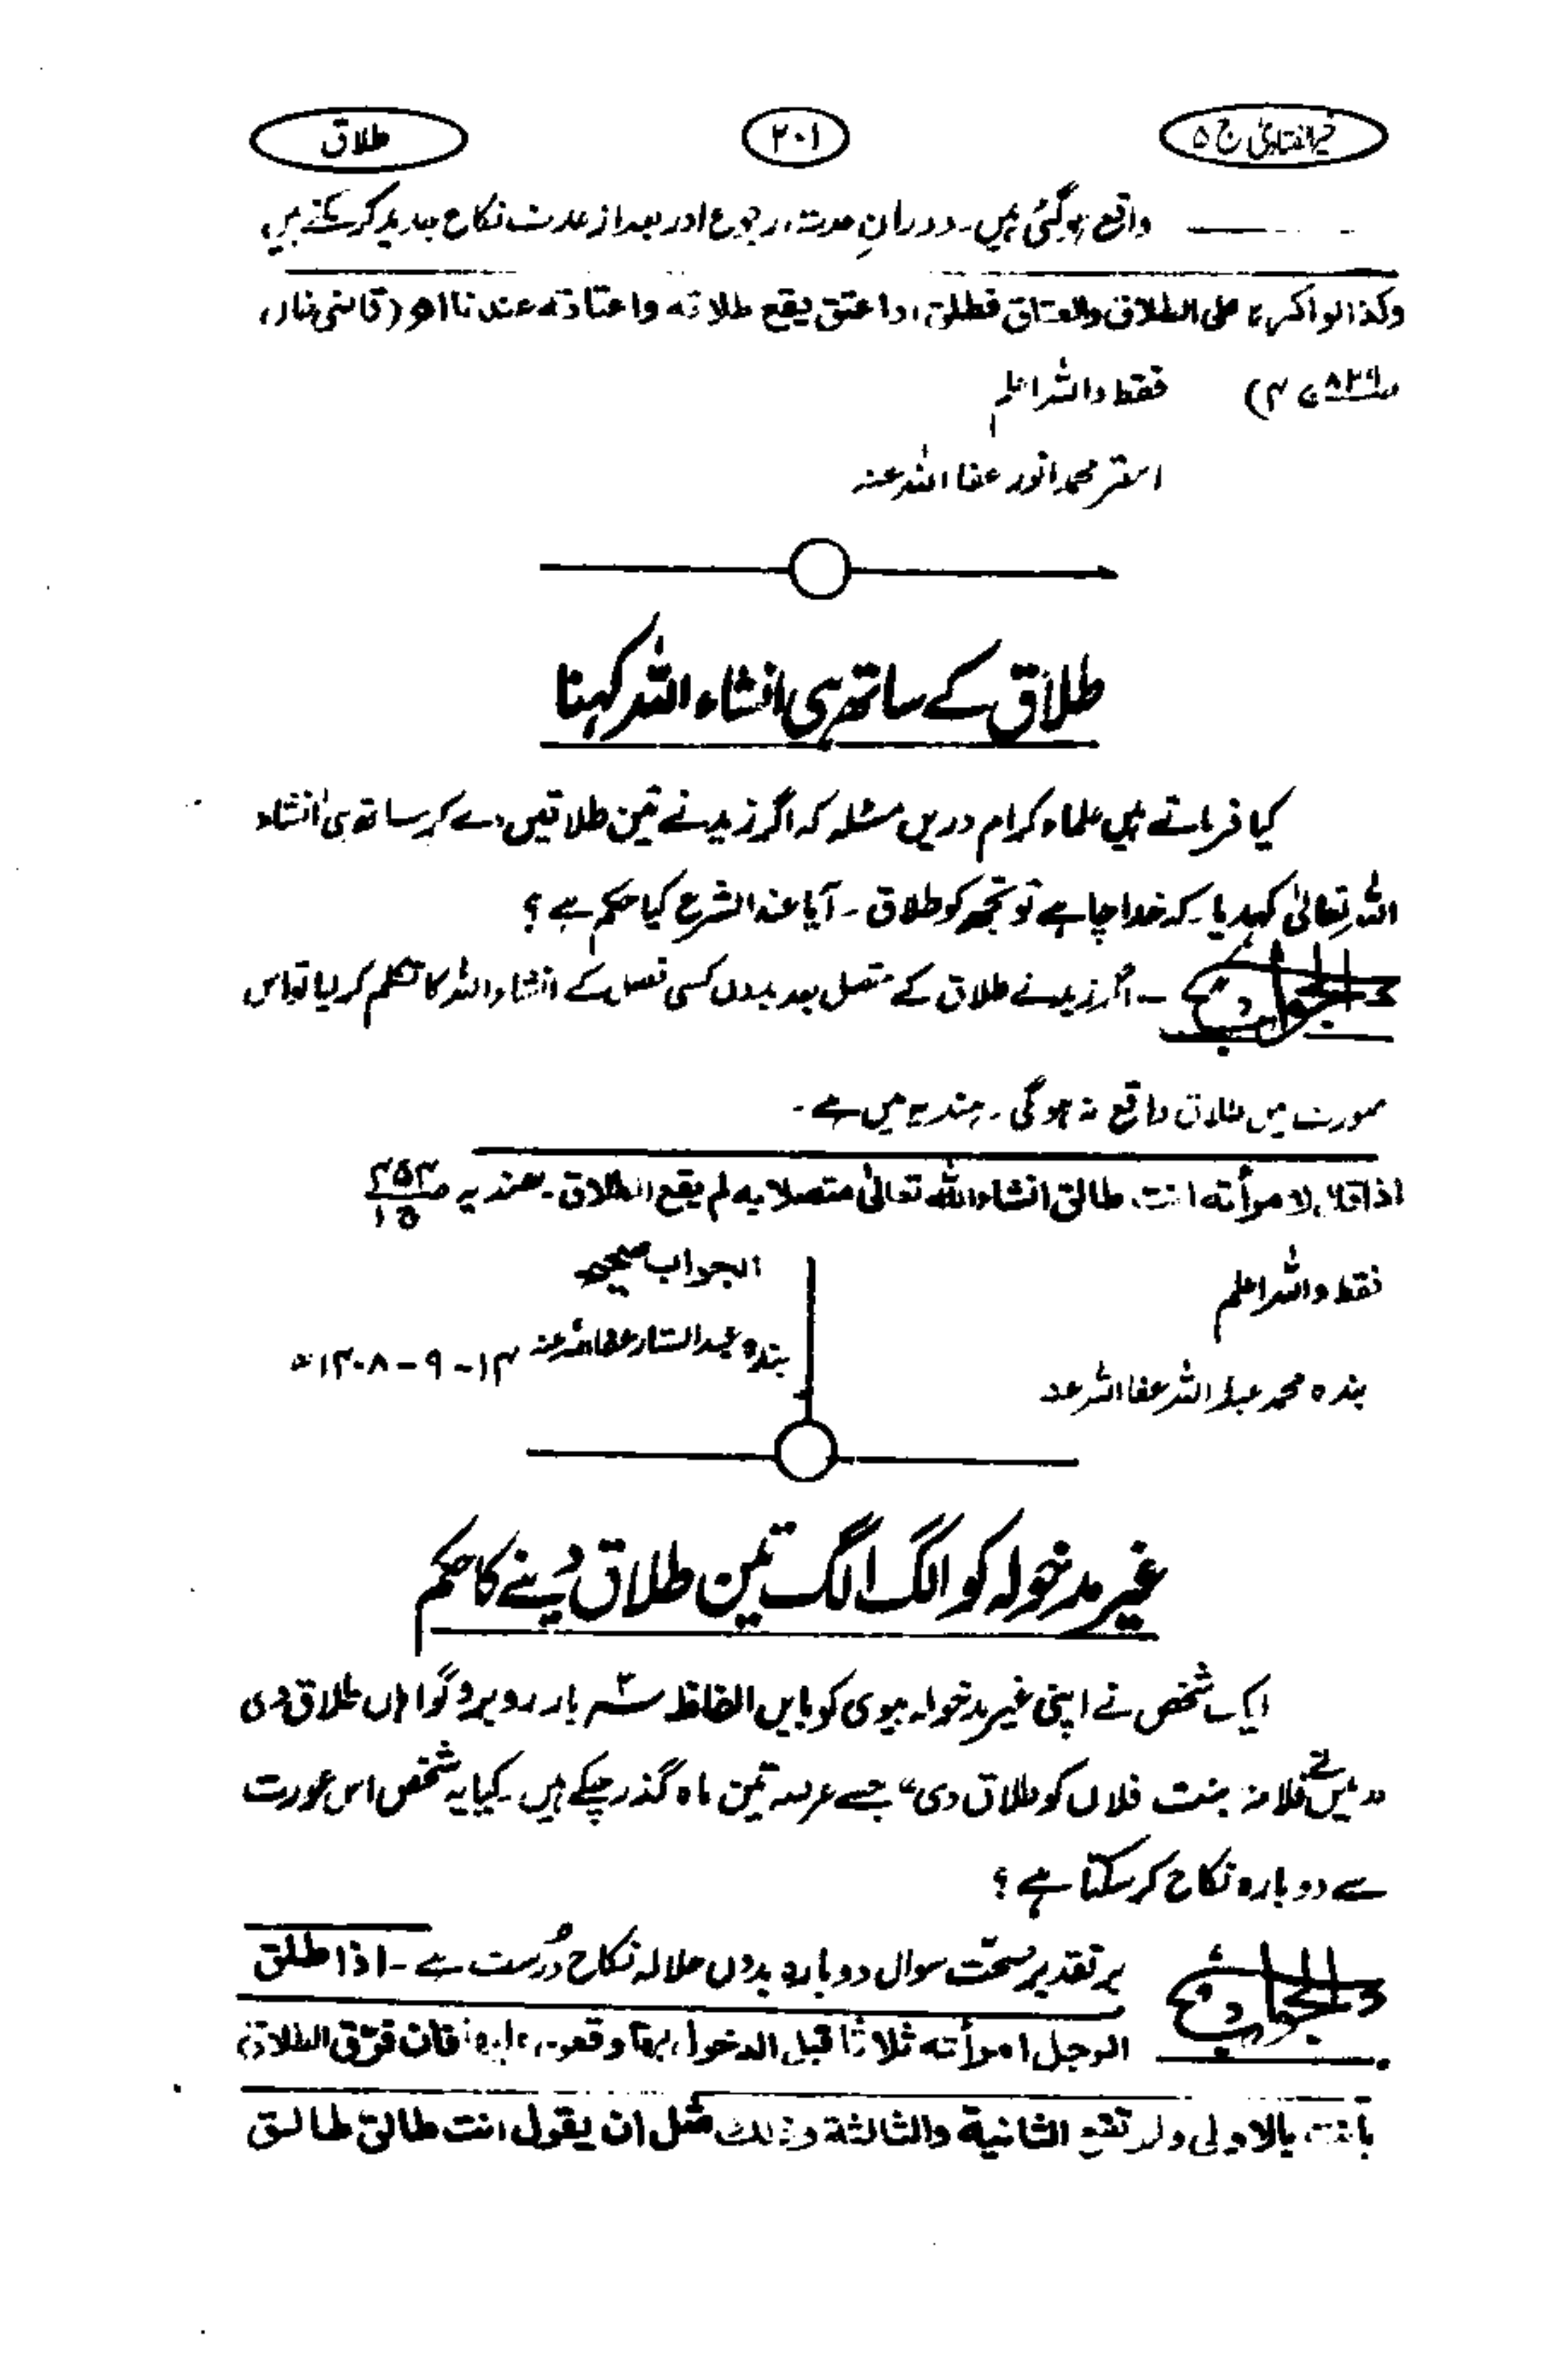 خیر الفتاویٰ ج ۵
۲۰۱
طلاق
واقع ہوگئی ہیں۔ دورانِ عدت، رجوع اور بعد از عدت نکاح جدید کر سکتے ہیں
وكذا لو اكره على الطلاق والعتاق فطلق او اعتق يقع طلاقه واعتاقه عندنا اھ (قاضی خان،
ج ۴) فقط واللہ اعلم
احقر محمد انور عفا اللہ عنہ
طلاق کے ساتھ ہی انشاء اللہ کہنا
کیا فرماتے ہیں علماء کرام دریں مسئلہ کہ اگر زید نے تین طلاقیں دے کر ساتھ ہی انشاء
اللہ تعالیٰ کہدیا۔ کہ خدا چاہے تو تجھ کو طلاق ۔ آیا عند الشرع کیا حکم ہے ؟
الجواب ۔ اگر زید نے طلاق کے متصل بعد بدوں کسی فصل کے انشاء اللہ کا تکلم کر لیا تو اس
صورت میں طلاق واقع نہ ہوگی ۔ ہندیہ میں ہے ۔
اذا قال لامرأته انت طالق انشاء الله تعالىٰ متصلا به لم يقع الطلاق ۔ ھندیہ ص۴۵۴ ج۱
فقط واللہ اعلم
بندہ محمد عبد اللہ عفا اللہ عنہ
الجواب صحیح
بندہ عبدالستار عفا اللہ عنہ ۱۴-۹-۱۴۰۸ھ
غیر مدخولہ کو الگ الگ تین طلاق دینے کا حکم
ایک شخص نے اپنی غیر مدخولہ بیوی کو بایں الفاظ سہ بار روبرو گواہاں طلاق دی
”میں نے فلانہ بنت فلاں کو طلاق دی“ جسے عرصہ تین ماہ گذر چکے ہیں ۔ کیا یہ شخص اس عورت
سے دوبارہ نکاح کر سکتا ہے ؟
الجواب برتقدیر صحّت سوال دوبارہ بدوں حلالہ نکاح دُرست ہے ۔ اذا طلق
الرجل امرأته ثلاثا قبل الدخول بها وقعن عليها فان فرّق الطلاق
بانت بالاولى ولم تقع الثانية والثالثة وذلك مثل ان يقول انت طالق طالق